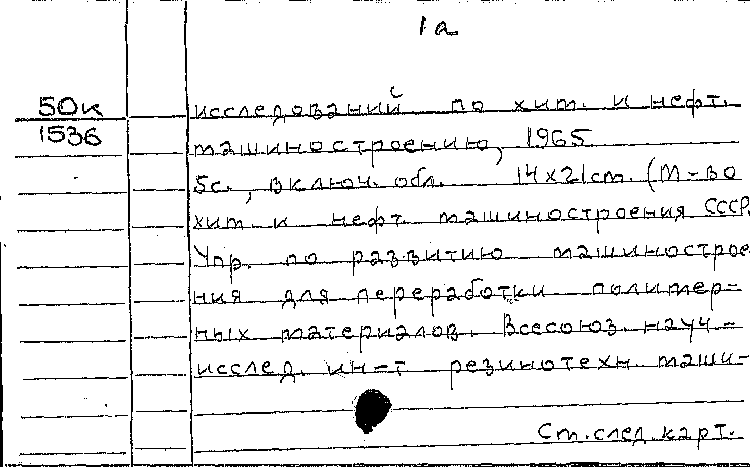 1а
50к
1536
исследований по хим. и нефт.
машиностроению, 1965
5с., включ. обл. 14х21см. (М-во
хим. и нефт. машиностроения СССР.
Упр. по развитию машинострое
ния для переработки полимер-
ных материалов. Всесоюз. науч-
исслед. ин-т резинотехн. маши-
См.след.карт.